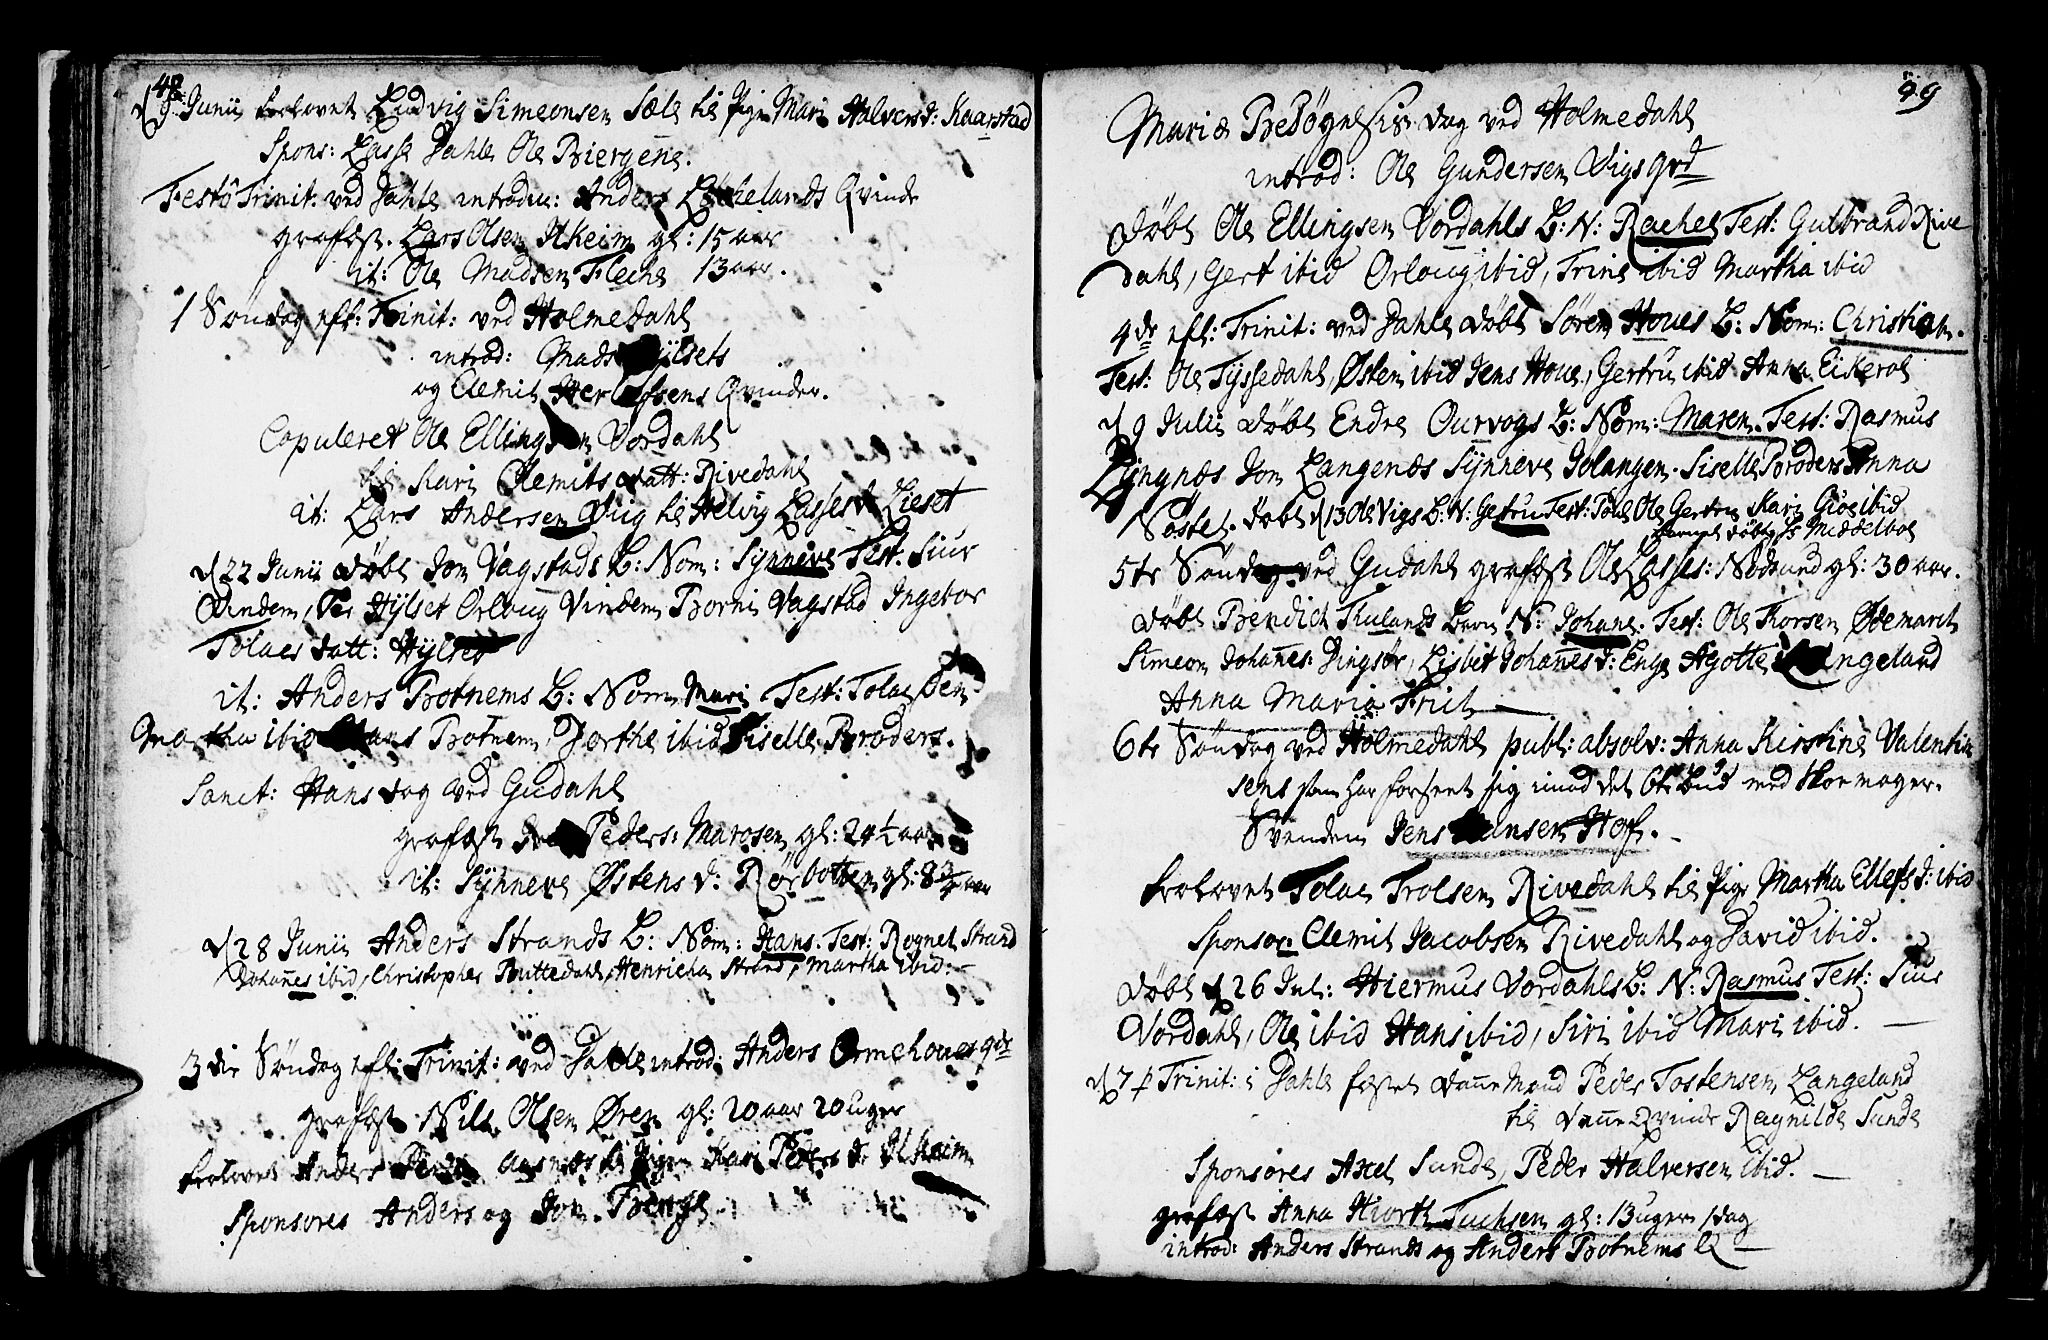 48
d 9 Junii trolovet Ludvig Simeonsen Sæle til Pige Mari Halversd: Kaarstad
Spons: Lasse Dahle Ole Biergene.
Festo Trinit: ved Dahle introdu: Anders Qvinde
grafæst. Lars Olsen Itkeim gl: 15 aar
it: Ole Madsen Fleche 13 aar.
1 Søndag eft: Trinit: ved Holmedahl
introd: Mads
og Clemit Herlofsens Qvinder.
Copuleret Ole Ellingsen Vordahl
til Kari Clemits datt: Rivedahl
it: Lars Andersen Vug til Helvig Lasses d Lieset
d 22 Junii døbt Jon Vagstads B: Nom: Synneve Test: Siur
Vindem, Per Hylset Orloug Vindem Borni Vagstad Ingebor
Tolaes datt: Hylset
it: Anders Botnems B: Nom Mari Test: Tolae
Martha ibid Hans Botnem, Dorthe ibid Siselle Broders.
Sanct: Hans dag ved Gudahl
grafæst Peders: Marosen gl: 24½ aar
it: Synneve Østens d: Rørbotten gl: 8¾ aar
d 28 Junii Anders Strands B: Nom: Hans. Test: Rognel Strand
Johañes ibid, Christopher Buttedahl, Henricha Strand, Martha ibid: —
3die Søndag eft: Trinit: ved Dahle introd: Anders Ormehoues qde
grafæst Nils Olsen Øren gl: 20 aar 20 Uger
trolovet Anders til Pigen Kari Peders dr Itkeim
Sponsores Anders og Jon Berge

49
Mariæ Besøgnelsis dag ved Holmedahl
introd: Ole Gundersen Vigs qvd
Døbt Ole Ellingsen Vordahls B: N: Rachel Test: Gulbrand Rive
dahl, Gert ibid Orloug ibid, Trine ibid Martha ibid
4de eft: Trinit: ved Dahle døbt Søren Houes B: Nom: Christian.
Test: Ole Tyssedahl, Østen ibid Jens Houe, Gertru ibid Anna Eikerol
d 9 Julii døbt Endre Ourvogs B: Nom: Maren. Test: Rasmus
Lyngnæs Jon Langenæs Synneve Jolangen. Siselle Broders Anna
Nøstel. døbt d 13 Ole Vigs B: N: Getru Test: Povel Ole Gertru Kari Gioe ibid
døbt Middelbøe
5te Søndag ved Gudahl grafæst Ole Lasses: Nødsund gl: 30 aar.
Døbt Bendich Thulands barn N: Johane. Test: Ole Thorsen Ødemarch
Simeon Johañes: Dingsør, Lisbet Johañes d: Enge Agotte Langeland
Anna Maria Friit —
6te Søndag ved Holmedahl publ: absolv: Anna Kirstine Valentin
sens som har forseet sig imod det 6te Bud med Skoemager-
Svenden Jens Hansen Hof. -
trolovet Tolae Trolsen Rivedahl til Pige Martha Ellefs d: ibid
Sponsor Clemit Jacobsen Rivedahl og David ibid.
Døbt d 26 Jul: Hiermus Vordahls B: N: Rasmus Test: Siur
Vordahl, Ole ibid Hans ibid, Siri ibid Mari ibid. —
d 7 p Trinit: i Dahle fæstet Dañe Mand Peder Tostensen Langeland
til Dañe Qvinde Ragnilde Sunde
Sponsores Axel Sunde, Peder Halversen ibid. —
grafæst Anna Hiorth Tuchsen gl: 13 ugen 1 dag
introd: Anders Strands og Anders Botnems Q —